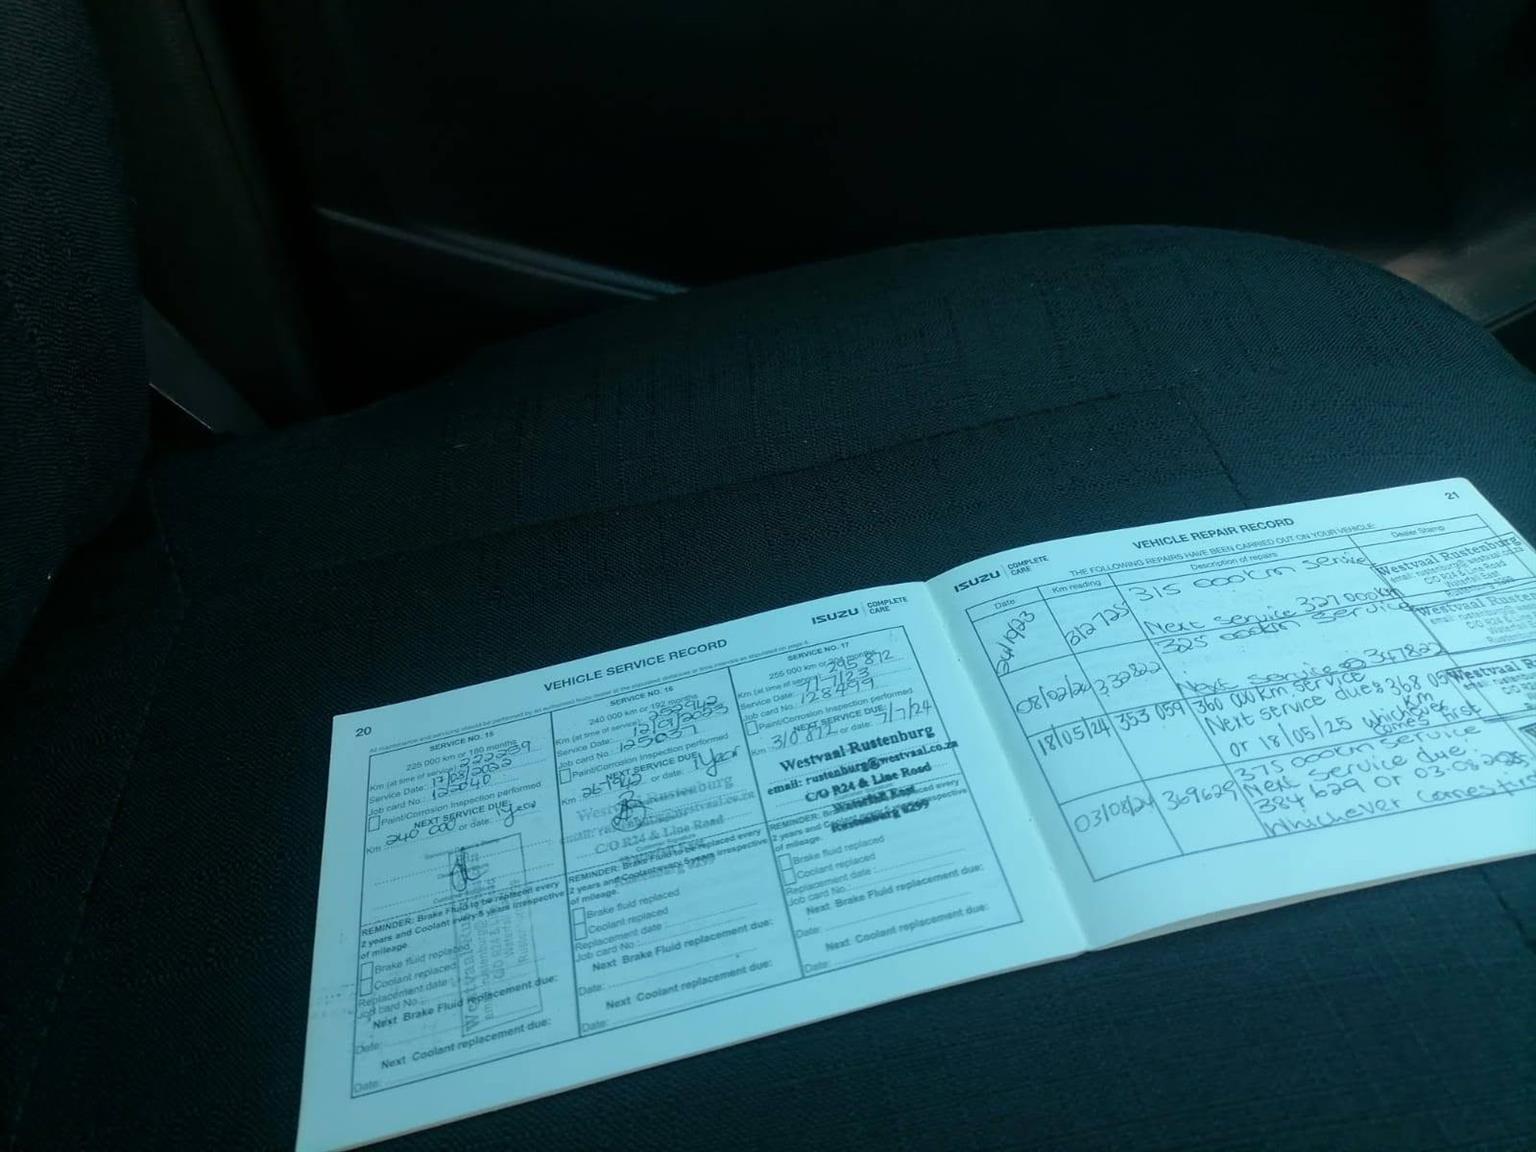 20
VEHICLE SERVICE RECORD
ISUZU COMPLETE CARE
SERVICE NO. 15
225 000 km or 180 months
Km (at time of service) 222259
Service Date: 17/08/2022
Job card No.
Paint/Corrosion Inspection performed
NEXT SERVICE DUE:
Km 240 000 or date: 1 year
REMINDER: Brake Fluid to be replaced every
2 years and Coolant every 5 years irrespective
of mileage.
Brake fluid replaced
Coolant replaced
Replacement date:
Job card No.:
Next Brake Fluid replacement due:
Date:
Next Coolant replacement due:
Date:
SERVICE NO. 16
240 000 km or 192 months
Km (at time of service) 252942
Service Date: 12/01/2023
Job card No. 125037
Paint/Corrosion Inspection performed
NEXT SERVICE DUE:
Km 267942 or date: 1 year
Westvaal Rustenburg
C/O R24 & Line Road
REMINDER: Brake Fluid to be replaced every
2 years and Coolant every 5 years irrespective
of mileage.
Brake fluid replaced
Coolant replaced
Replacement date:
Job card No.:
Next Brake Fluid replacement due:
Date:
Next Coolant replacement due:
Date:
SERVICE NO. 17
255 000 km or months
Km (at time of service) 295872
Service Date: 11-7/23
Job card No. 128499
Paint/Corrosion Inspection performed
NEXT SERVICE DUE:
Km 310872 or date: 7/7/24
Westvaal Rustenburg
email: rustenburg@westvaal.co.za
C/O R24 & Line Road
Waterfall East
Rustenburg 0299
REMINDER: Brake Fluid replaced every
2 years and Coolant irrespective
of mileage.
Brake fluid replaced
Coolant replaced
Replacement date:
Job card No.:
Next Brake Fluid replacement due:
Date:
Next Coolant replacement due:
Date:
21
ISUZU COMPLETE CARE
VEHICLE REPAIR RECORD
THE FOLLOWING REPAIRS HAVE BEEN CARRIED OUT ON YOUR VEHICLE:
Date Km reading Description of repairs Dealer Stamp
312725 315 000km service
Next service 327000km
Westvaal Rustenburg
C/O R24 & Line Road
Waterfall East
08/02/24 332822 325 000km service
Next service @ 347822
Westvaal
18/05/24 353 059 360 000km service
Next service due: 368 059 km
or 18/05/25 whichever
comes first
Westvaal
03/08/24 369629 375 000km service
Next service due:
384 629 or 03.08.2025
Whichever comes first